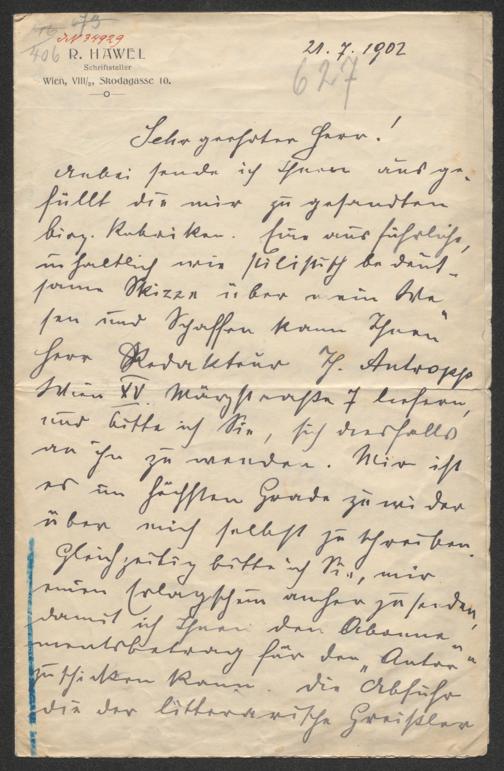 73
406
JN 34929
R. HAWEL
Schriftsteller
Wien, VIII/2, Skodagasse 10.
21. 7. 1902
627
Sehr geehrter Herr!
Anbei sende ich Ihnen ausge-
füllt die mir zugesandten
biog. Rubriken. Eine ausführliche,
inhaltlich wie stilistisch bedeut-
same Skizze über mein We-
sen und Schaffen kann Ihnen
Herr Redakteur Th. Antropp
Wien XV. Märzstraße 7 liefern,
und bitte ich Sie, sich diesfalls
an ihn zu wenden. Mir ist
es im höchsten Grade zuwider
über mich selbst zu schreiben.
Gleichzeitig bitte ich Sie, mir
einen Erlagschein anher zu senden,
damit ich Ihnen den Abonne-
mentsbetrag für den „Autor"
zuschicken kann. Die Abfuhr
die der litterarische Greißler